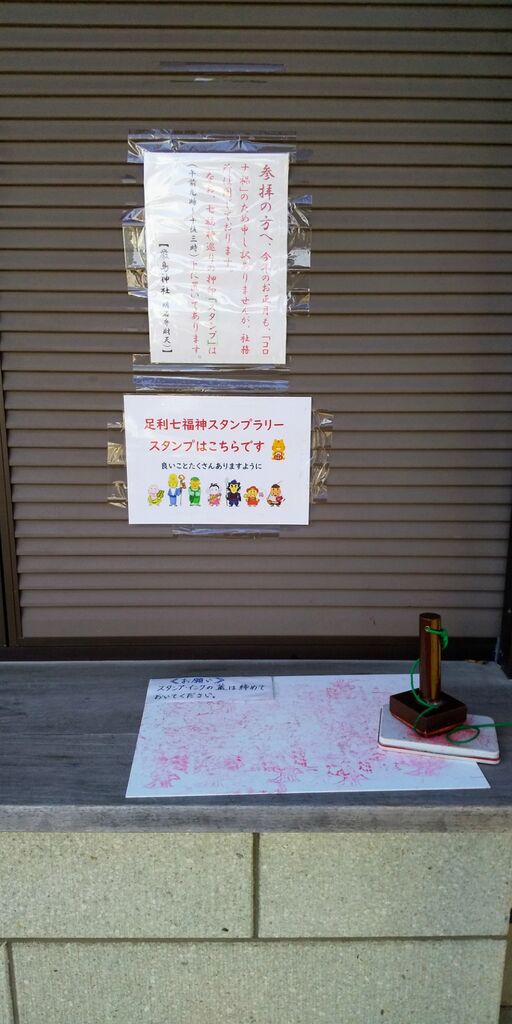 参拝の方へ 今年のお正月も、「コロ
ナ禍」のため申し訳ありませんが、社務
所は閉じております。
なお、七福神巡りの押印「スタンプ」は
(午前九時〜午後三時)下に置いてあります。
【厳島神社 明石弁財天】
足利七福神スタンプラリー
スタンプはこちらです
良いことたくさんありますように
<お願い>
スタンプインクの蓋は締めて
おいてください。